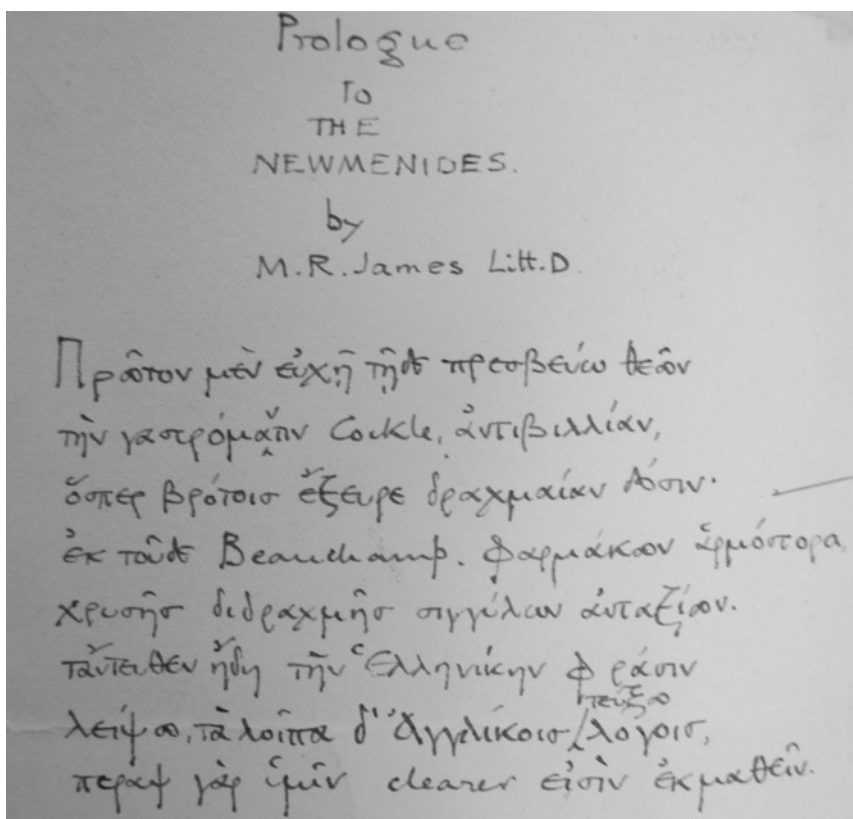 Prologue
To
THE
NEWMENIDES.
by
M.R. James Litt.D.
Πρῶτον μὲν εὐχῇ τῇδε πρεσβεύω θεῶν
τὴν γαστρόμαντιν Cockle, ἀντιβιλλίαν,
ὅσπερ βρότοισ ἔξευρε δραχμαίαν δόσιν·
ἐκ τοῦδε Beauchamp. φαρμάκων ἁρμόστορα,
χρυσῆσ διδραχμῆσ σιγγύλων ἀνταξίων.
ταὔτευθεν ἤδη τὴν Ἑλληνίκην φράσιν
λείψω, τὰ λοίπα δ' Ἀγγλίκοισ πεύξω λόγοισ,
γὰρ ὑμῖν clearer εἰσὶν ἐκμαθεῖν.